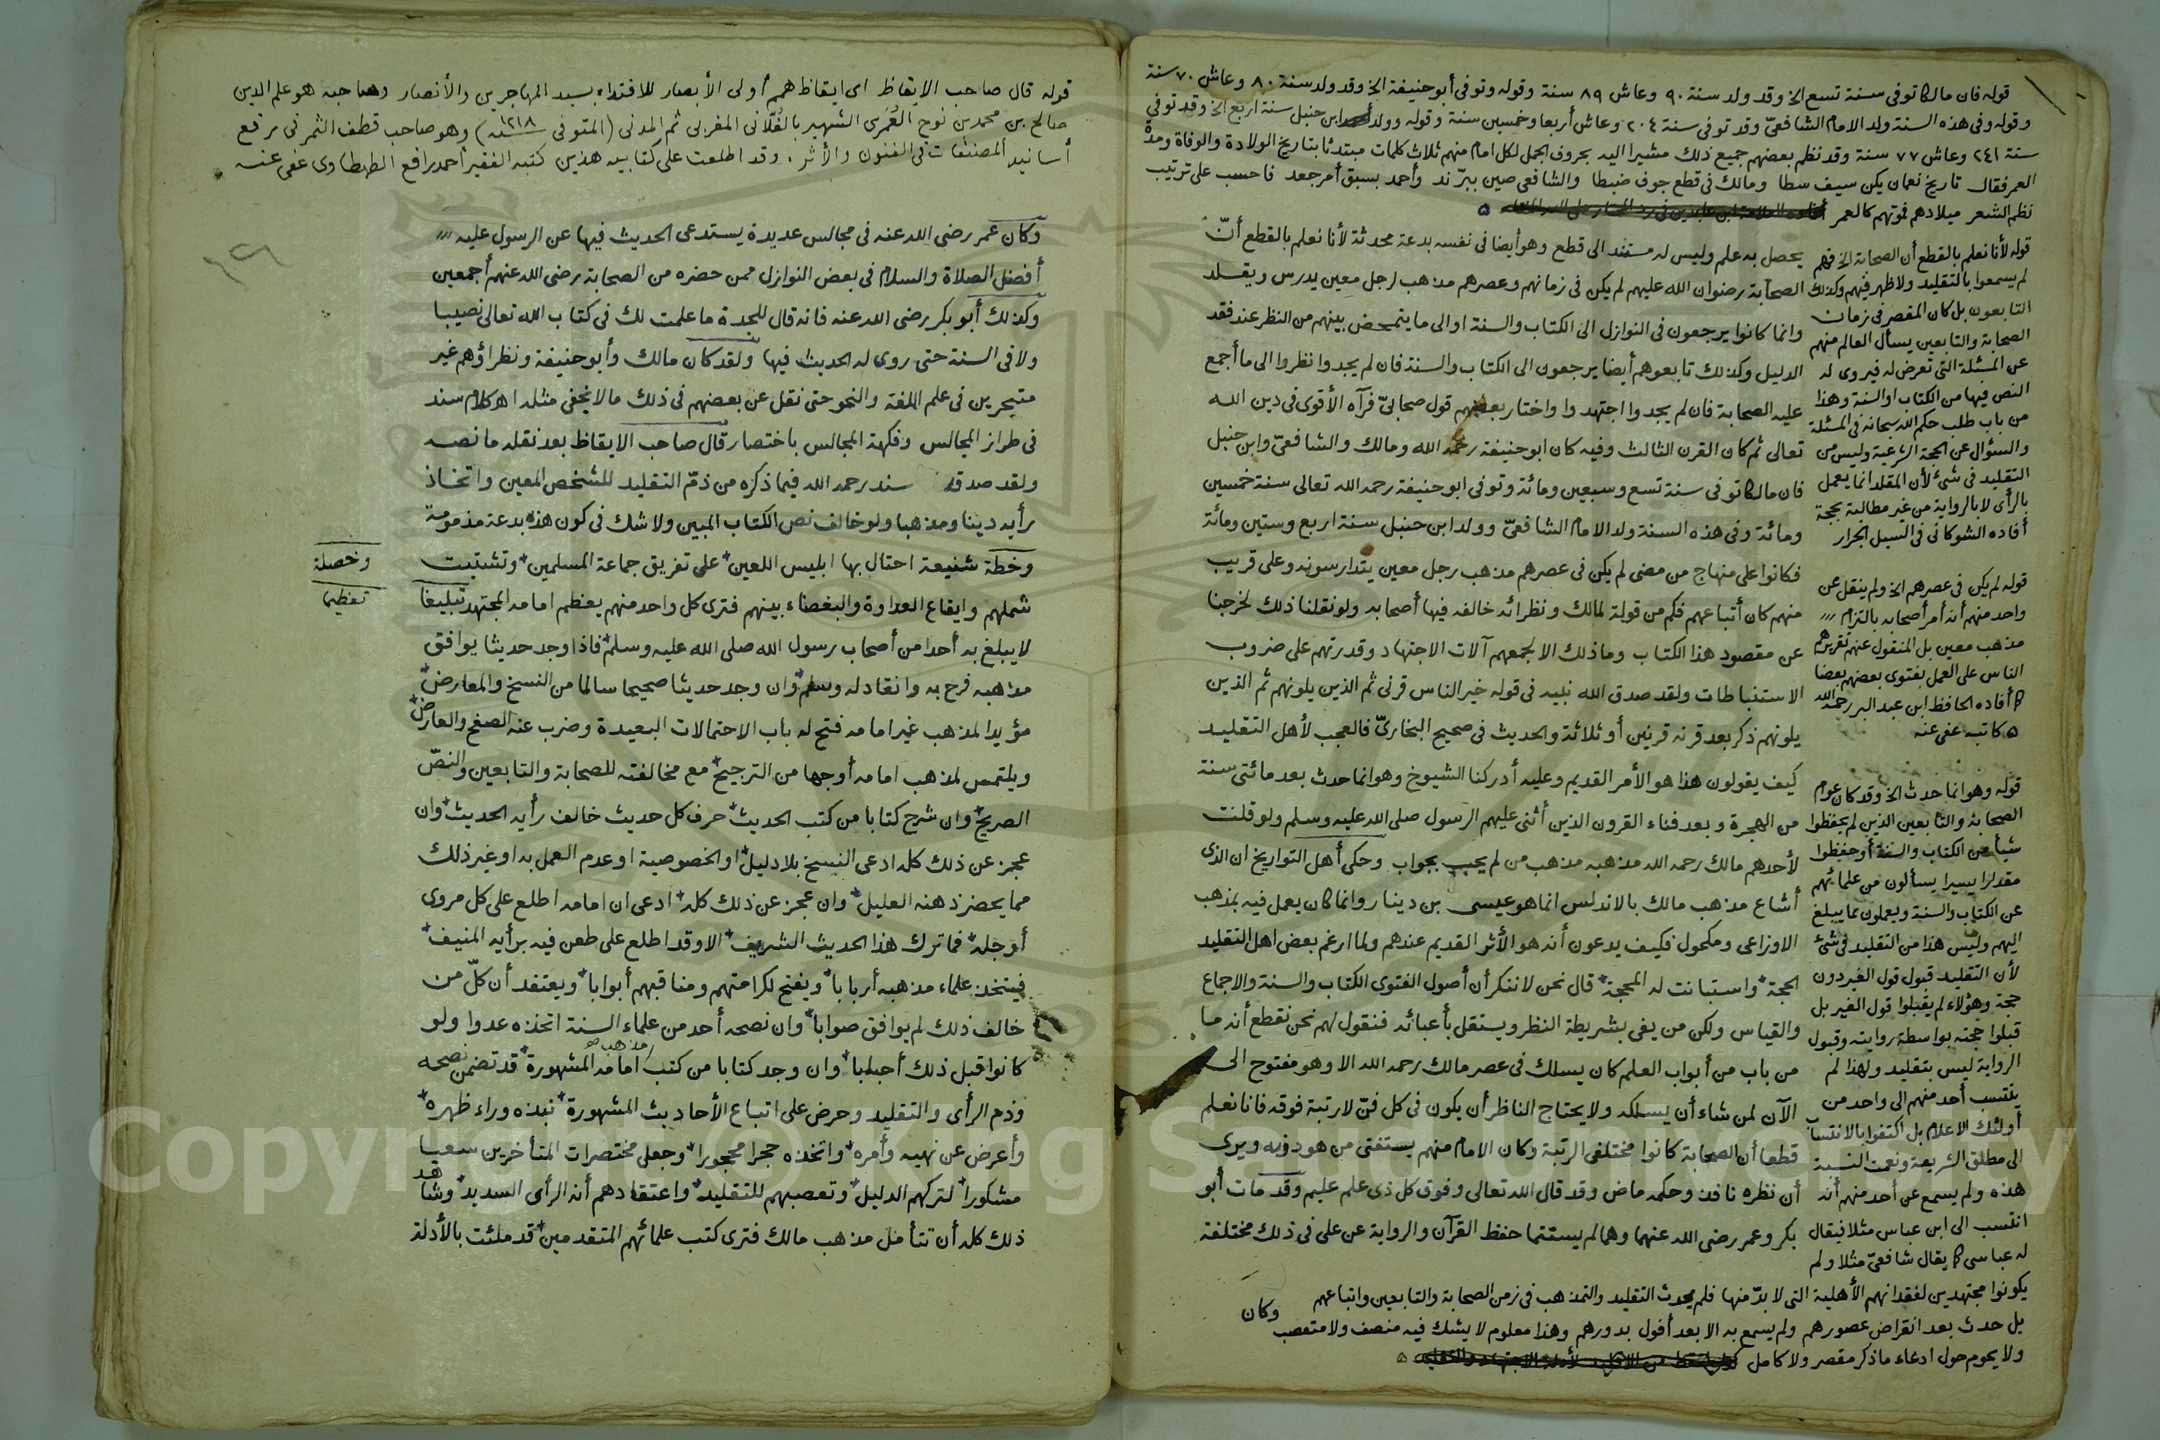 قوله فان مالكا توفى سنة تسع الخ وقد ولد سنة ٩٠ وعاش ٨٩ سنة وقوله وتوفى أبو حنيفة الخ وقد ولد سنة ٨٠ وعاش ٧٠ سنة
وقوله وفى هذه السنة ولد الامام الشافعىّ وقد توفى سنة ٢٠٤ وعاش أربعا وخمسين سنة وقوله وولد أحمد ابن حنبل سنة اربع الخ وقد توفى
سنة ٢٤١ وعاش ٧٧ سنة وقد نظم بعضهم جميع ذلك مشيرا اليه بحروف الجمل لكل امام منهم ثلاث كلمات مبتدئا بتاريخ الولادة والوفاة ومدة
العمر فقال تاريخ نعمان يكن سيف سطا ومالك فى قطع جوف ضبطا والشافعى صين ببرّ ند وأحمد بسبق أمر جعد فاحسب على ترتيب
نظم الشعر ميلادهم فموتهم كالعمر
قوله لأنا نعلم بالقطع أن الصحابة الخ فهم
لم يسمعوا بالتقليد ولا ظهر فيهم وكذلك
التابعون بل كان المقصر فى زمان
الصحابة والتابعين يسأل العالم منهم
عن المسئلة التى تعرض له فيروى له
النص فيها من الكتاب او السنة وهذا
من باب طلب حكم الله سبحانه فى المسئلة
والسؤال عن الحجة الشرعية وليس من
التقليد فى شئ لأن المقلد انما يعمل
بالرأى لا بالرواية من غير مطالبة بحجة
أفاده الشوكانى فى السيل الجرار
قوله لم يكن فى عصرهم الخ ولم ينقل عن
واحد منهم أنه أمر أصحابه بالتزام
مذهب معين بل المنقول عنهم تقريرهم
الناس على العمل بفتوى بعضهم بعضا
كما أفاده الحافظ ابن عبد البر رحمه الله
٥ كاتبه عفى عنه
قوله وهو انما حدث الخ وقد كان عوام
الصحابة والتابعين الذين لم يحفظوا
شيأ من الكتاب والسنة أو حفظوا
مقدارا يسيرا يسألون من علمائهم
عن الكتاب والسنة ويعملون بما يبلغ
اليهم وليس هذا من التقليد فى شئ
لأن التقليد قبول قول الغير دون
حجة وهؤلاء لم يقبلوا قول الغير بل
قبلوا حجته بواسطة روايته وقبول
الرواية ليس بتقليد ولهذا لم
ينتسب أحد منهم الى واحد من
أولئك الأعلام بل اكتفوا بالانتساب
الى مطلق الشريعة ونعمت النسبة
هذه ولم يسمع عن أحد منهم أنه
انتسب الى ابن عباس مثلا فيقال
له عباسى كما يقال شافعىّ مثلا ولم
يكونوا مجتهدين لفقدانهم الأهلية التى لا بدّ منها فلم يحدث التقليد والتمذهب فى زمن الصحابة والتابعين واتباعهم
بل حدث بعد انقراض عصورهم ولم يسمع به الا بعد أفول بدورهم وهذا معلوم لا يشك فيه منصف ولا متعصب
ولا يحوم حول ادعاء ما ذكر مقصر ولا كامل
يحصل به علم وليس له مستند الى قطع وهو أيضا فى نفسه بدعة محدثة لأنا نعلم بالقطع أنّ
الصحابة رضوان الله عليهم لم يكن فى زمانهم وعصرهم مذهب لرجل معين يدرس ويقلد
وانما كانوا يرجعون فى النوازل الى الكتاب والسنة او الى ما يتمحض بينهم من النظر عند فقد
الدليل وكذلك تابعوهم أيضا يرجعون الى الكتاب والسنة فان لم يجدوا نظروا الى ما أجمع
عليه الصحابة فان لم يجدوا اجتهدوا واختار بعضهم قول صحابىّ فرآه الأقوى فى دين الله
تعالى ثم كان القرن الثالث وفيه كان ابو حنيفة رحمه الله ومالك والشافعىّ وابن حنبل
فان مالكا توفى سنة تسع وسبعين ومائة وتوفى ابو حنيفة رحمه الله تعالى سنة خمسين
ومائة وفى هذه السنة ولد الامام الشافعىّ وولد ابن حنبل سنة اربع وستين ومائة
فكانوا على منهاج من مضى لم يكن فى عصرهم مذهب رجل معين يتدارسونه وعلى قريب
منهم كان أتباعهم فكم من قولة لمالك ونظرائه خالفه فيها أصحابه ولو نقلنا ذلك لخرجنا
عن مقصود هذا الكتاب وما ذلك الا لجمعهم آلات الاجتهاد وقدرتهم على ضروب
الاستنباطات ولقد صدق الله نبيه فى قوله خير الناس قرنى ثم الذين يلونهم ثم الذين
يلونهم ذكر بعد قرنه قرنين أو ثلاثة والحديث فى صحيح البخارىّ فالعجب لأهل التقليد
كيف يقولون هذا هو الأمر القديم وعليه أدركنا الشيوخ وهو انما حدث بعد مائتى سنة
من الهجرة وبعد فناء القرون الذين أثنى عليهم الرسول صلى الله عليه وسلم ولو قلت
لأحدهم مالك رحمه الله مذهبه مذهب من لم يجب بجواب وحكى أهل التواريخ ان الذى
أشاع مذهب مالك بالاندلس انما هو عيسى بن دينار وانما كان يعمل فيه بمذهب
الاوزاعى ومكحول فكيف يدعون أنه هو الأثر القديم عندهم ولما ارغم بعض اهل التقليد
الحجة واستبانت له المحجة قال نحن لا ننكر أن أصول الفتوى الكتاب والسنة والاجماع
والقياس ولكن من يفى بشريطة النظر ويستقل بأعبائه فنقول لهم نحن نقطع أنه ما
من باب من أبواب العلم كان يسلك فى عصر مالك رحمه الله الا وهو مفتوح الى
الآن لمن شاء أن يسلكه ولا يحتاج الناظر أن يكون فى كل فنّ لا رتبة فوقه فانا نعلم
قطعا أن الصحابة كانوا مختلفى الرتبة وكان الامام منهم يستفتى من هو دونه ويرى
أن نظره نافذ وحكمه ماض وقد قال الله تعالى وفوق كل ذى علم عليم وقد مات أبو
بكر وعمر رضى الله عنهما وهما لم يستتما حفظ القرآن والرواية عن على فى ذلك مختلفة
وكان
قوله قال صاحب الايقاظ اى ايقاظ همم أولى الأبصار للاقتداء بسيد المهاجرين والأنصار وصاحبه هو علم الدين
صالح بن محمد بن نوح العُمَرى الشهير بالفُلّانى المغربى ثم المدنى (المتوفى سنة ١٢١٨) وهو صاحب قطف الثمر فى رفع
أسانيد المصنفات فى الفنون والأثر. وقد اطلعت على كتابيه هذين كتبه الفقير أحمد رافع الطهطاوى عفى عنه
وكان عمر رضى الله عنه فى مجالس عديدة يستدعى الحديث فيها عن الرسول عليه
أفضل الصلاة والسلام فى بعض النوازل ممن حضره من الصحابة رضى الله عنهم أجمعين
وكذلك أبو بكر رضى الله عنه فانه قال للجدة ما علمت لك فى كتاب الله تعالى نصيبا
ولا فى السنة حتى روى له الحديث فيها ولقد كان مالك وأبو حنيفة ونظراؤهم غير
متبحرين فى علم اللغة والنحو حتى نقل عن بعضهم فى ذلك ما لا يخفى مثله اهـ كلام سند
فى طراز المجالس وفكهة المجالس باختصار قال صاحب الايقاظ بعد نقله ما نصه
ولقد صدق سند رحمه الله فيما ذكره من ذمّ التقليد للشخص المعين واتخاذ
رأيه دينا ومذهبا ولو خالف نص الكتاب المبين ولا شك فى كون هذه بدعة مذمومة
وخطة شنيعة احتال بها ابليس اللعين على تفريق جماعة المسلمين وتشتيت
وخصلة
شملهم وايقاع العداوة والبغضاء بينهم فترى كل واحد منهم يعظم امامه المجتهد تبليغا
تعظيما
لا يبلغ به أحدا من أصحاب رسول الله صلى الله عليه وسلم فاذا وجد حديثا يوافق
مذهبه فرح به وانقاد له وسلم وان وجد حديثا صحيحا سالما من النسخ والمعارض
مؤيدا لمذهب غير امامه فتح له باب الاحتمالات البعيدة وضرب عنه الصفح والعارض
ويلتمس لمذهب امامه أوجها من الترجيح مع مخالفته للصحابة والتابعين والنصّ
الصريح وان شرح كتابا من كتب الحديث حرف كل حديث خالف رأيه الحديث وان
عجز عن ذلك كله ادعى النسخ بلا دليل او الخصوصية او عدم العمل به او غير ذلك
مما يحضر ذهنه العليل وان عجز عن ذلك كله ادعى ان امامه اطلع على كل مروى
أو جله فما ترك هذا الحديث الشريف الا وقد اطلع على طعن فيه برأيه المنيف
فيتخذ علماء مذهبه أربابا ويفتح لكرامتهم ومناقبهم أبوابا ويعتقد أن كلّ من
خالف ذلك لم يوافق صوابا وان نصحه أحد من علماء السنة اتخذه عدوا ولو
كانوا قبل ذلك أحبابا وان وجد كتابا من كتب مذهب امامه المشهورة قد تضمن نصحه
وذم الرأى والتقليد وحرض على اتباع الأحاديث المشهورة نبذه وراء ظهره
وأعرض عن نهيه وأمره واتخذه حجرا محجورا وجعل مختصرات المتأخرين سعيا
مشكورا لتركهم الدليل وتعصبهم للتقليد واعتقادهم أنه الرأى السديد وشاهد
ذلك كله أن تتأمل مذهب مالك فترى كتب علمائهم المتقدمين قد ملئت بالأدلة
Copyright © King Saud University